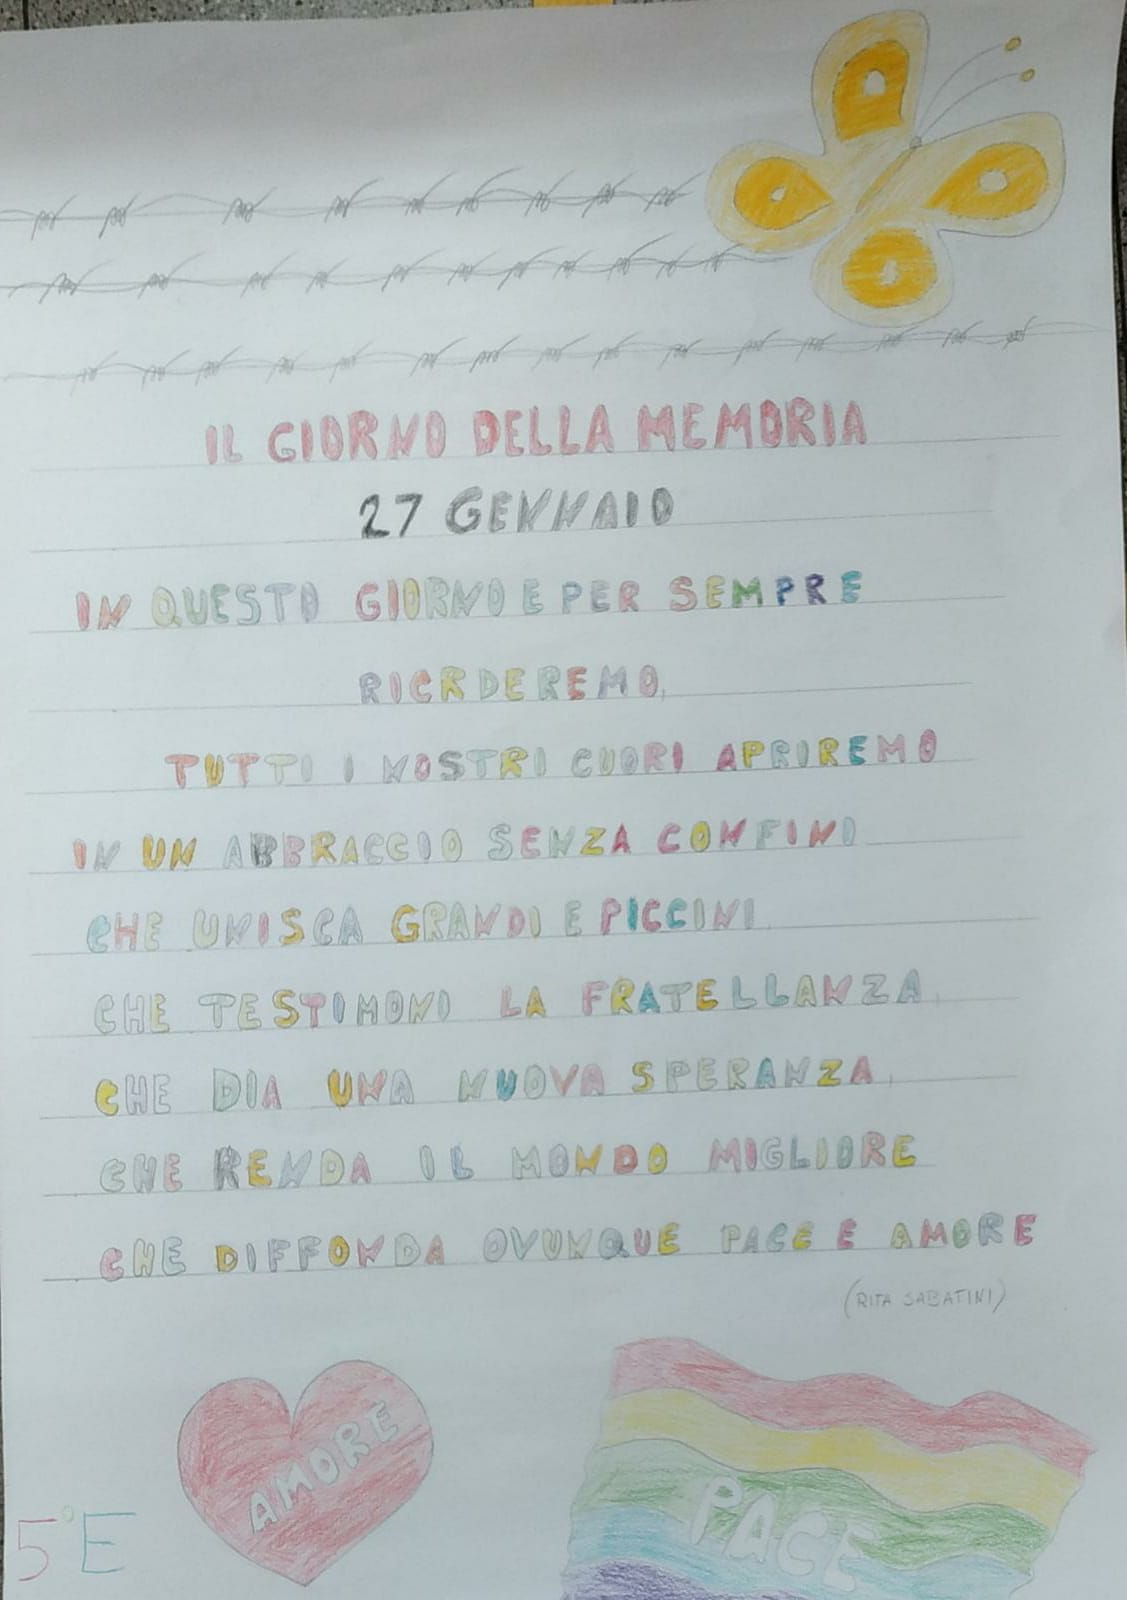 IL GIORNO DELLA MEMORIA
27 GENNAIO
IN QUESTO GIORNO E PER SEMPRE
RICRDEREMO,
TUTTI I NOSTRI CUORI APRIREMO
IN UN ABBRACCIO SENZA CONFINI
CHE UNISCA GRANDI E PICCINI,
CHE TESTIMONI LA FRATELLANZA,
CHE DIA UNA NUOVA SPERANZA,
CHE RENDA IL MONDO MIGLIORE
CHE DIFFONDA OVUNQUE PACE E AMORE
(RITA SABATINI)
AMORE
PACE
5°E